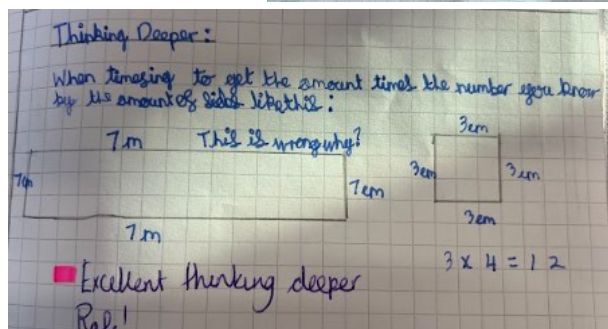 Thinking Deeper:
When timesing to get the amount times the number you know
by the amount of sides like this:
7m This is wrong why?
3cm
7cm
7cm
3cm
3cm
7m
3cm
3 x 4 = 12
Excellent thinking deeper